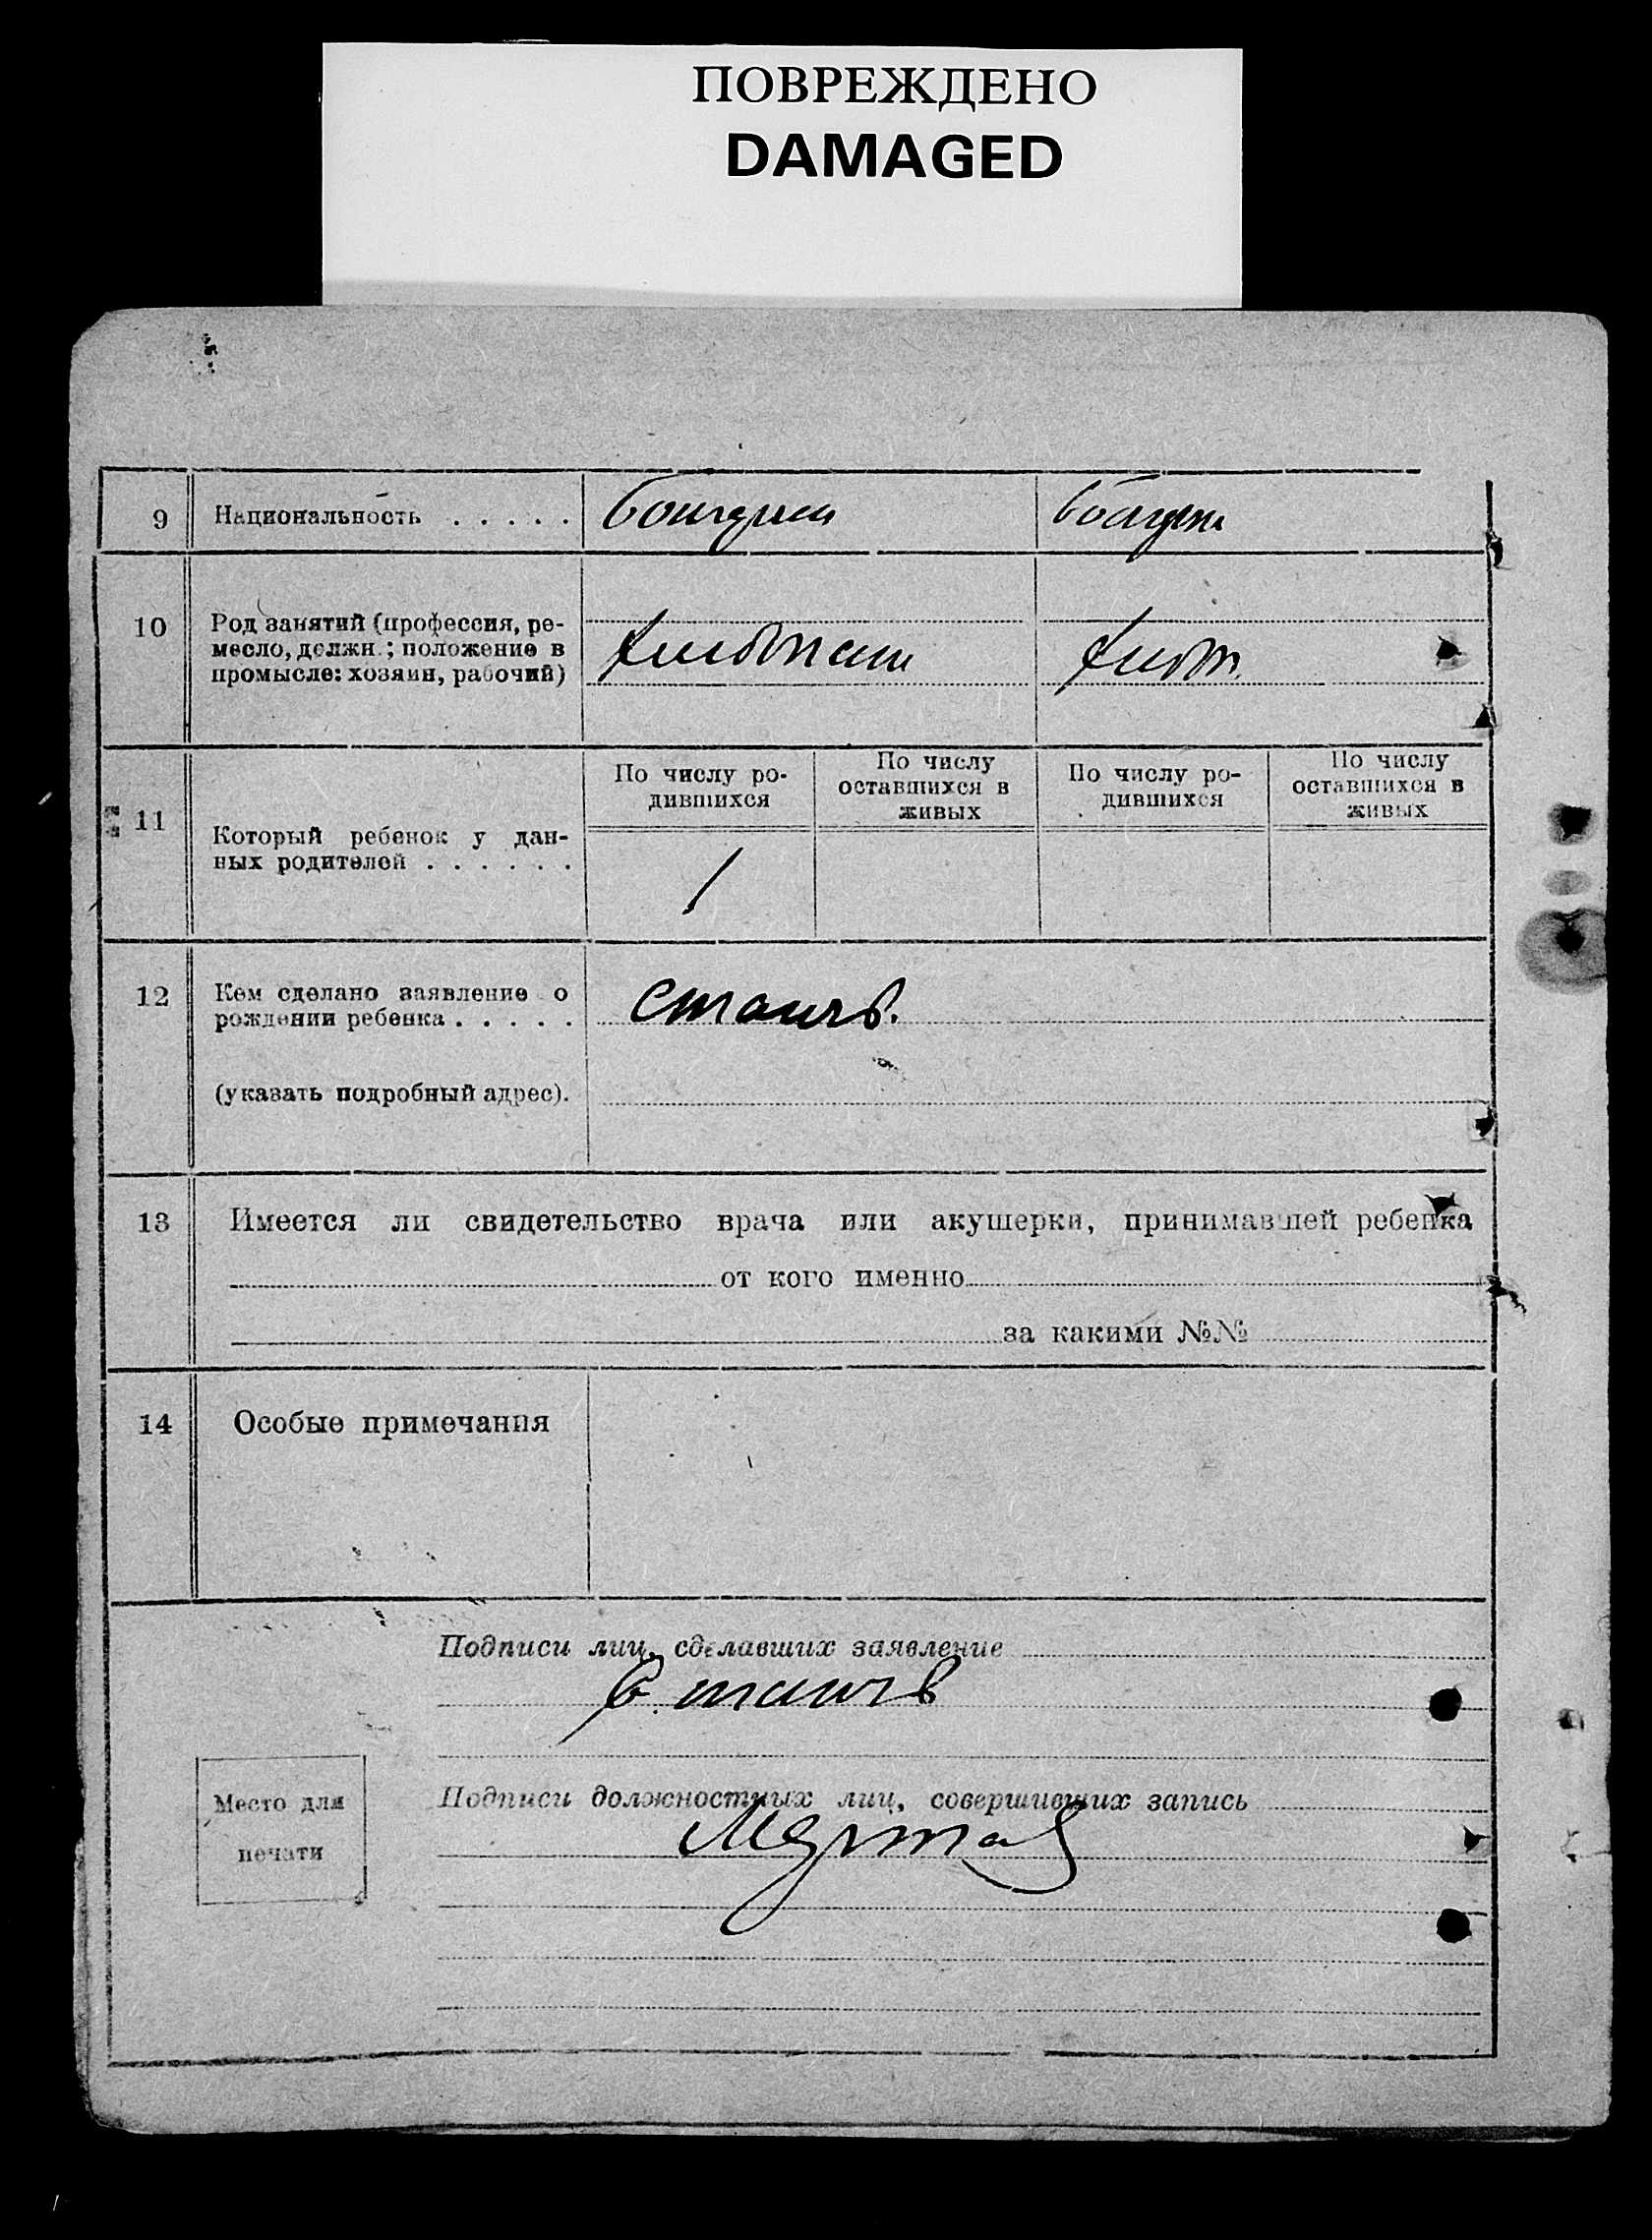 ПОВРЕЖДЕНО
DAMAGED
9 Национальность . . . . .
10 Род занятий (профессия, ре-
месло, должн.; положение в
промысле: хозяин, рабочий)
По числу ро-
дившихся
По числу
оставшихся в
живых
По числу ро-
дившихся
По числу
оставшихся в
живых
11 Который ребенок у дан-
ных родителей . . . . . .
1
12 Кем сделано заявление о
рождении ребенка . . . . .
(указать подробный адрес).
13 Имеется ли свидетельство врача или акушерки, принимавшей ребенка
от кого именно
за какими №№
14 Особые примечания
Подписи лиц, сделавших заявление
Место для
печати
Подписи должностных лиц, совершивших запись